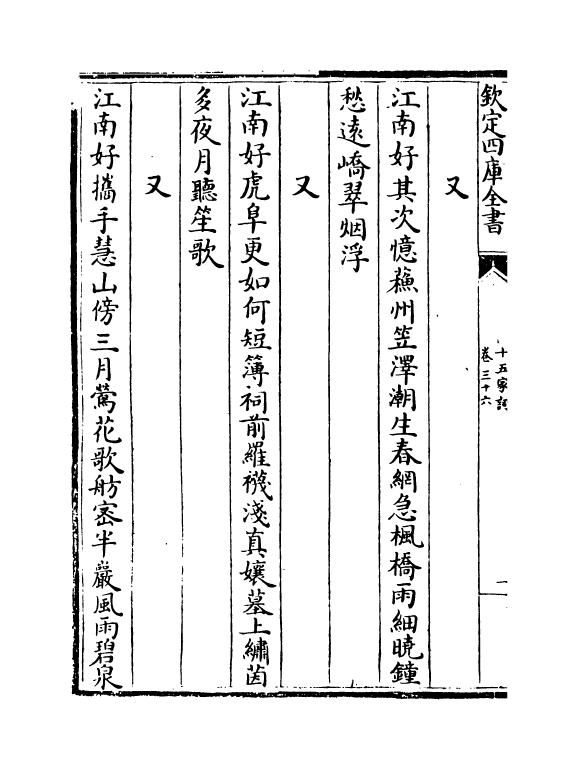 欽定四庫全書
十五家詞
卷三十六
一
又
江南好其次憶蘓州笠澤潮生春網急楓橋雨細曉鐘
愁遠嶠翠烟浮
又
江南好虎阜更如何短簿祠前羅襪淺真孃墓上繡茵
多夜月聽笙歌
又
江南好攜手慧山傍三月鶯花歌舫密半巖風雨碧泉